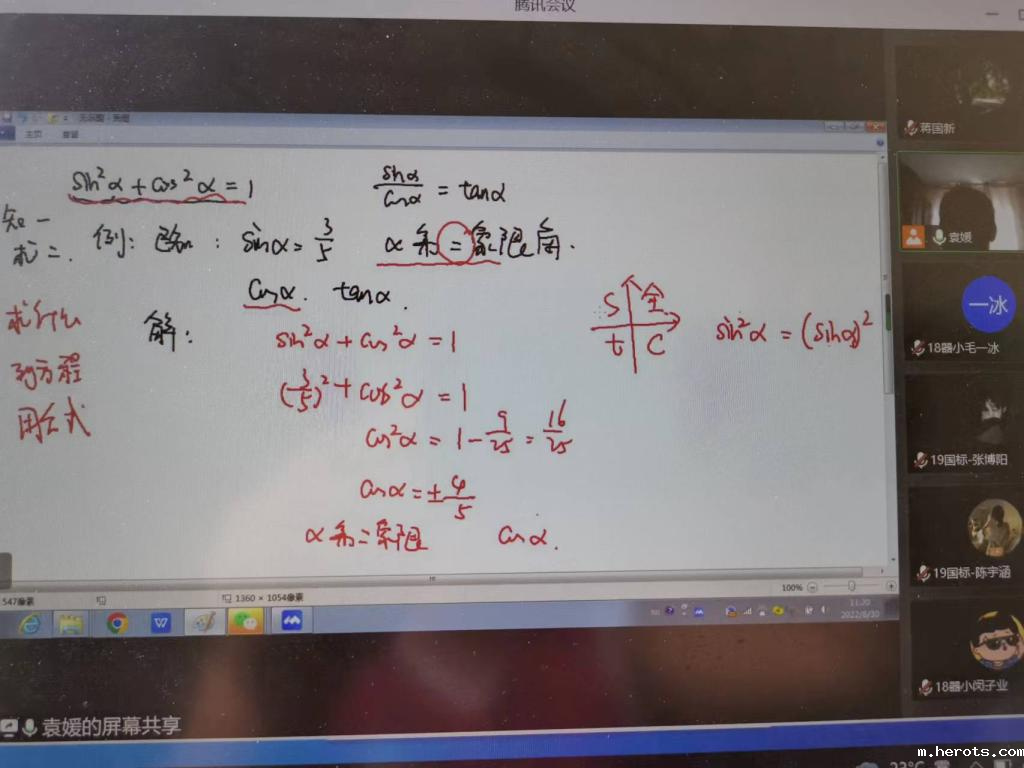 腾讯会议
主页
sin²α + cos²α = 1
sinα/cosα = tanα
知一
求二.
例: 已知: sinα = 3/5 α 系 = 象限角.
cosα. tanα.
求什么
列方程
用公式
解:
sin²α + cos²α = 1
(3/5)² + cos²α = 1
cos²α = 1 - 9/25 = 16/25
cosα = ± 4/5
α 系二象限 cosα.
S 全
t C
sin²α = (sinα)²
547像素
1360 × 1054像素
100%
11:20
2022/6/30
蒋国新
袁媛
一冰
18器小毛一冰
19国标-张博阳
19国标-陈宇涵
18器小闵子业
袁媛的屏幕共享
m.herots.com
23°C